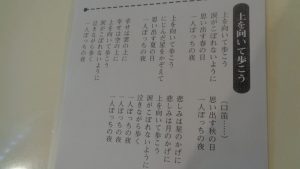 上を向いて歩こう
上を向いて歩こう
涙がこぼれないように
思い出す春の日
一人ぼっちの夜
上を向いて歩こう
にじんだ星をかぞえて
思い出す夏の日
一人ぼっちの夜
幸せは雲の上に
幸せは空の上に
上を向いて歩こう
涙がこぼれないように
泣きながら歩く
一人ぼっちの夜
（口笛……）
思い出す秋の日
一人ぼっちの夜
悲しみは星のかげに
悲しみは月のかげに
上を向いて歩こう
涙がこぼれないように
泣きながら歩く
一人ぼっちの夜
一人ぼっちの夜